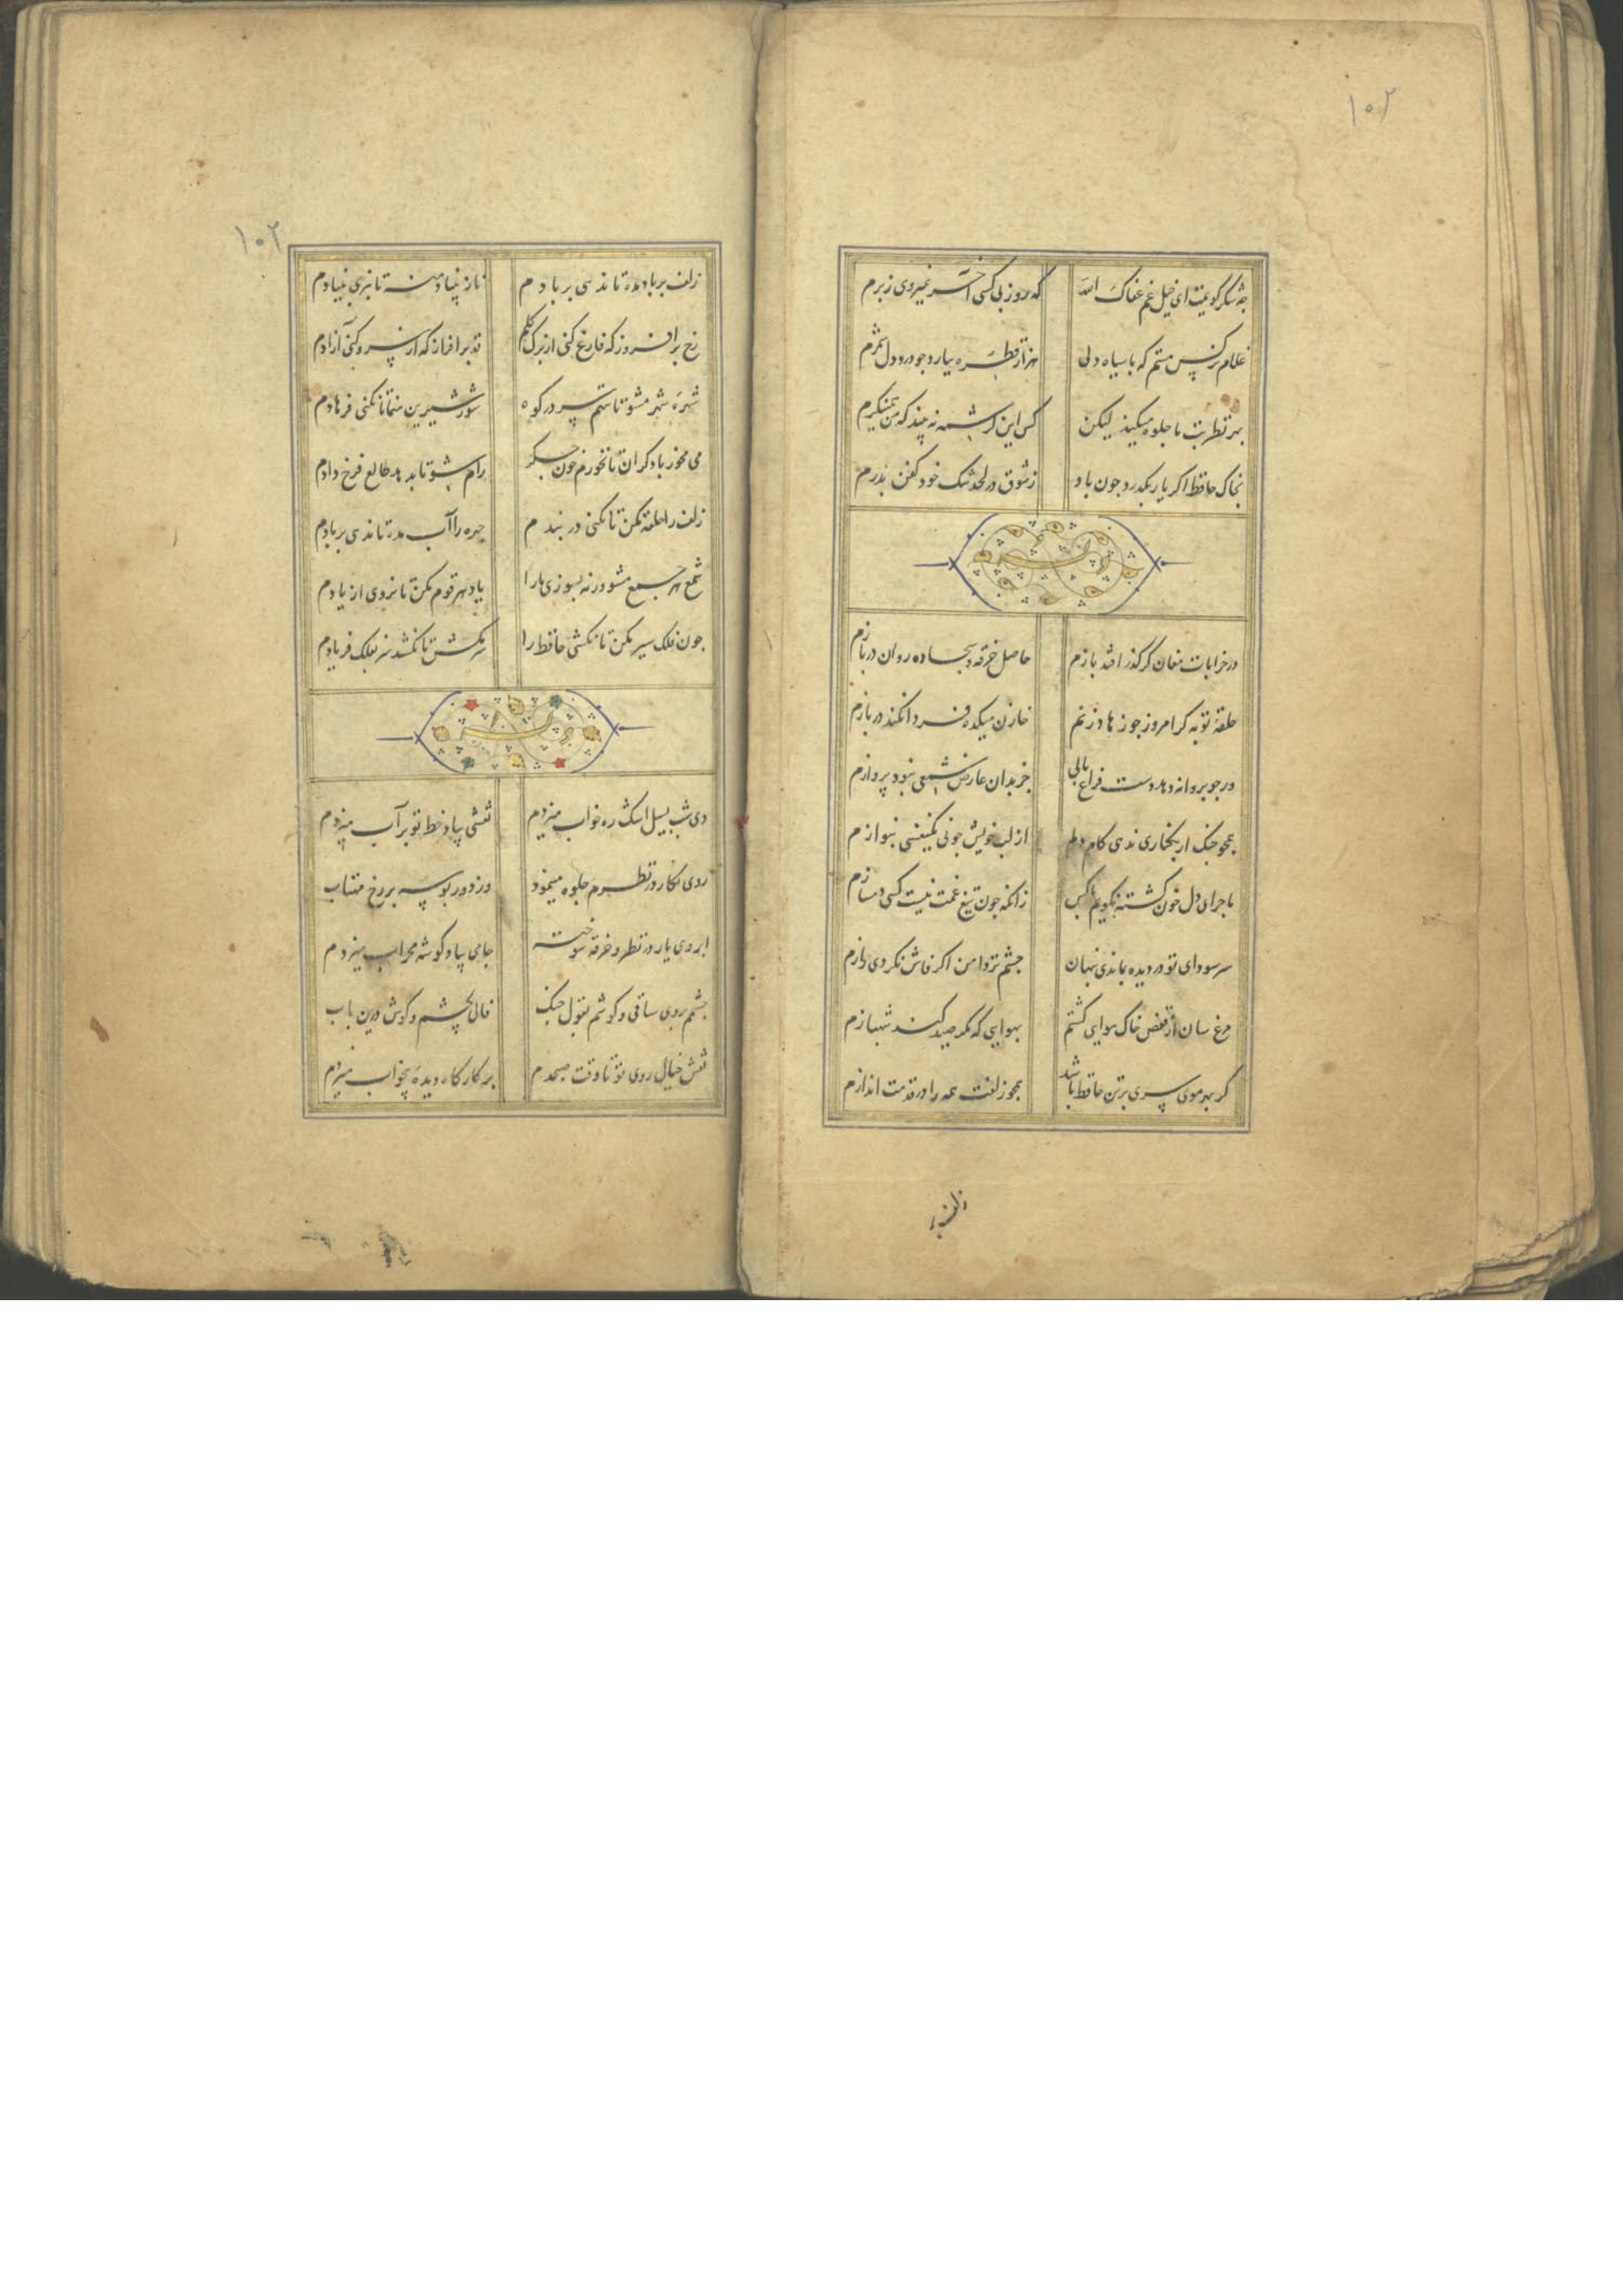 ۱۰۲
چه شکر گویمت ای خیل غم عفاک الله
که روز بی کسی آخر نمیروی ز برم
غلام نرکس مستم که با سیاه دلی
هزار قطره ببارد چو درد دل شمرم
بهر نظر بت ما جلوه میکند لیکن
کس این کرشمه نه بیند که من همی نکرم
بخاک حافظ اکر یار بکذرد چون باد
ز شوق در لحد تنک خود کفن بدرم
در خرابات مغان کر کذر افتد بازم
حاصل خرقه و سجاده روان دربازم
حلقه توبه کر امروز چو زهاد زنم
خازن میکده فردا نکند در بازم
ور چو پروانه دهد دست فراغ بالی
جز بدان عارض شمعی نبود پروازم
همچو چنک ار بکناری ندهی کام دلم
از لب خویش چو نی یکنفسی بنوازم
ماجرای دل خون کشته نکویم با کس
زانکه چون تیغ غمت نیست کسی دمسازم
سر سودای تو در دیده بماندی نهان
چشم تردامن اکر فاش نکردی رازم
مرغ سان از قفس خاک هوایی کشتم
بهوایی که مکر صید کند شهبازم
کر بهر موی سری بر تن حافظ باشد
همچو زلفت همه را در قدمت اندازم
زلف بر
۱۰۲
زلف بر باد مده تا ندهی بر بادم
ناز بنیاد منه تا نبری بنیادم
رخ برافروز که فارغ کنی از برک کلم
قد برافراز که از سرو کنی آزادم
شهره شهر مشو تا ننهم سر در کوه
شور شیرین منما تا نکنی فرهادم
می مخور با دکران تا نخورم خون جکر
رام شو تا بدهد طالع فرخ دادم
زلف را حلقه مکن تا نکنی در بندم
چهره را آب مده تا ندهی بر بادم
شمع هر جمع مشو ورنه بسوزی ما را
یاد هر قوم مکن تا نروی از یادم
چون فلک سیر مکن تا نکشی حافظ را
سر مکش تا نکشد سر بفلک فریادم
دی شب بسیل اشک ره خواب میزدم
نقشی بیاد خط تو بر آب میزدم
روی نکار در نظرم جلوه مینمود
وز دور بوسه بر رخ مهتاب
ابروی یار در نظر و خرقه سوخته
جامی بیاد کوشه محراب میزدم
چشمم بروی ساقی و کوشم بقول چنک
فالی بچشم و کوش درین باب
نقش خیال روی تو تا وقت صبحدم
بر کارکاه دیده بیخواب میزدم